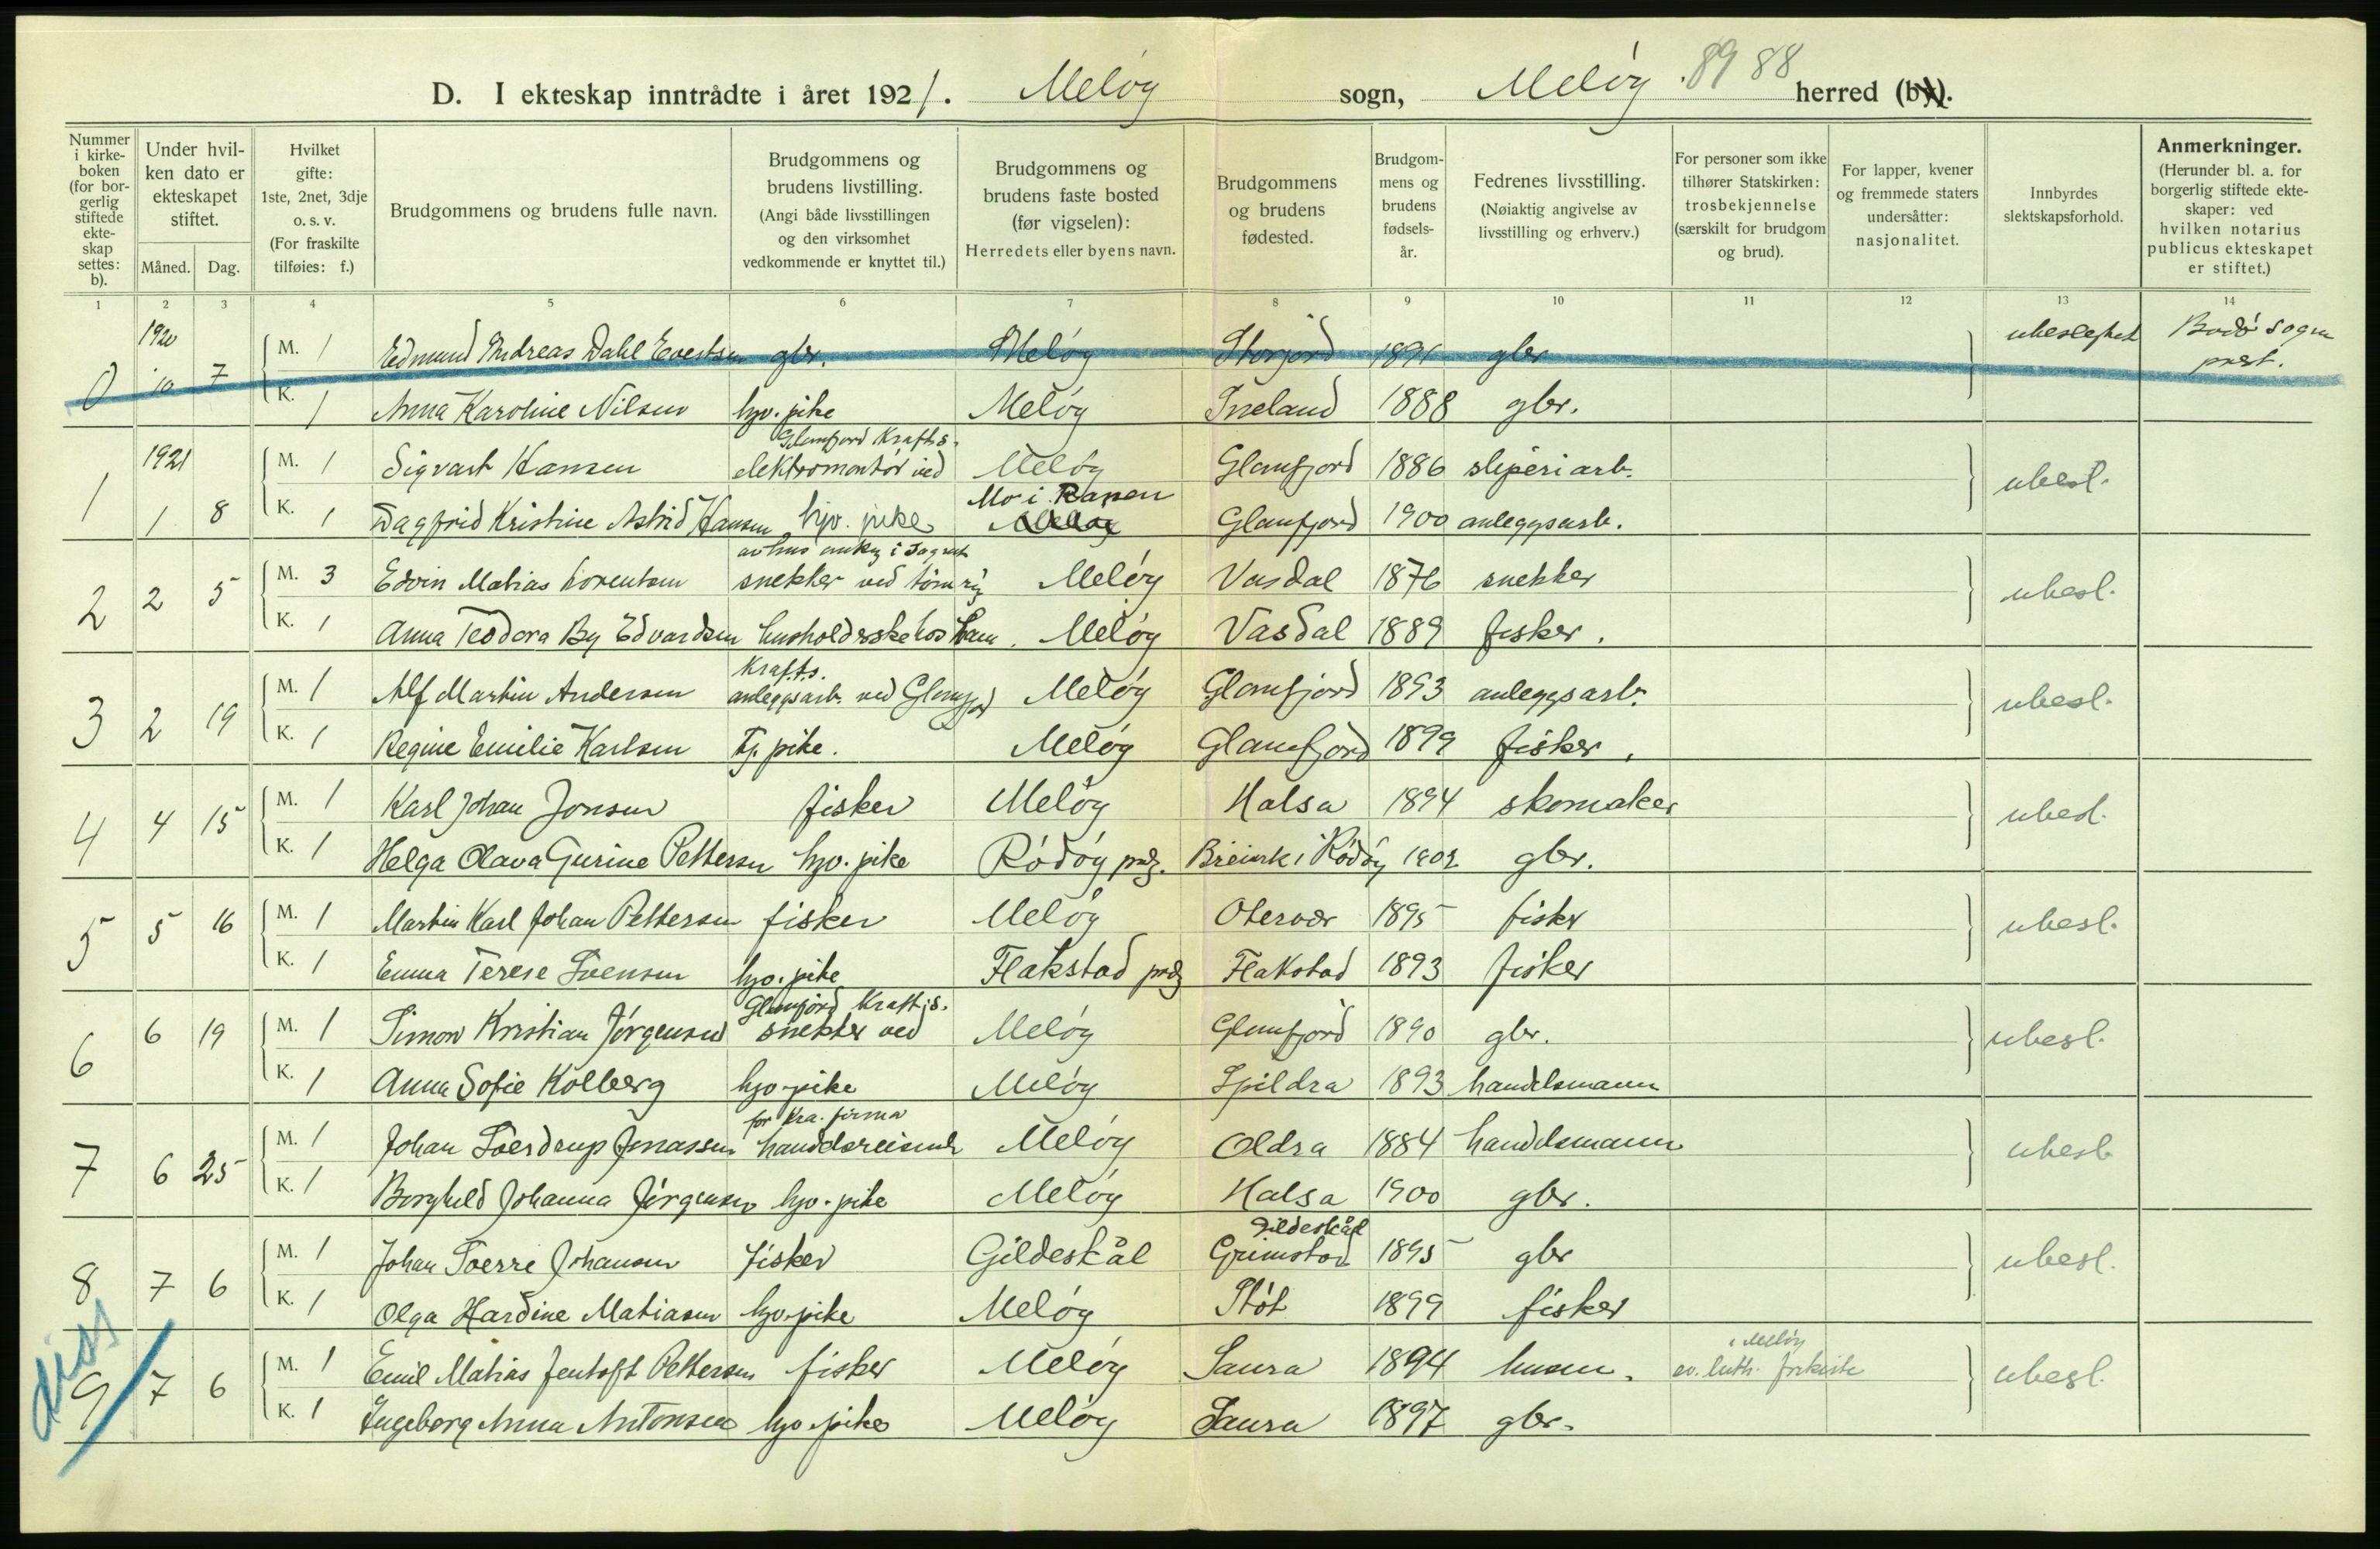 D. I ekteskap inntrådte i året 1921. Meløy sogn, Meløy 89 88 herred (by).
Nummer i kirkeboken (for borgerlig stiftede ekteskap settes: b).
Under hvilken dato er ekteskapet stiftet.
Måned. Dag.
Hvilket gifte: 1ste, 2net, 3dje o. s. v. (For fraskilte tilføies: f.)
Brudgommens og brudens fulle navn.
Brudgommens og brudens livstilling. (Angi både livsstillingen og den virksomhet vedkommende er knyttet til.)
Brudgommens og brudens faste bosted (før vigselen): Herredets eller byens navn.
Brudgommens og brudens fødested.
Brudgommens og brudens fødselsår.
Fedrenes livsstilling. (Nøiaktig angivelse av livsstilling og erhverv.)
For personer som ikke tilhører Statskirken: trosbekjennelse (særskilt for brudgom og brud).
For lapper, kvener og fremmede staters undersåtter: nasjonalitet.
Innbyrdes slektskapsforhold.
Anmerkninger. (Herunder bl. a. for borgerlig stiftede ekteskaper: ved hvilken notarius publicus ekteskapet er stiftet.)
1 2 3 4 5 6 7 8 9 10 11 12 13 14
0 1920 10 7 M. 1 Edmund Andreas Dahl Evertsen gbr. Meløy Storjord 1891 gbr ubeslegtet Bodø sogneprest.
K. 1 Anna Karoline Nilsen hjv. pike Meløy Ineland 1888 gbr.
1 1921 1 8 M. 1 Sigvart Hansen elektromontør ved Glomfjord Krafts. Meløy Glomfjord 1886 sliperiarb. ubesl.
K. 1 Dagfrid Kristine Astrid Hansen hjv. pike Mo i Ranen Meløy Glomfjord 1900 anleggsarb.
2 2 5 M. 3 Edvin Matias Lorentsen snekker ved Meløy Vasdal 1876 snekker ubesl.
K. 1 Anna Teodora By Edvardsen husholderske hos ham. Meløy Vasdal 1889 fisker.
3 2 19 M. 1 Alf Martin Andersen anleggsarb. ved Glomfjord Krafts. Meløy Glomfjord 1893 anleggsarb. ubesl.
K. 1 Regine Emilie Karlsen tj. pike. Meløy Glomfjord 1899 fisker.
4 4 15 M. 1 Karl Johan Jonsen fisker Meløy Halsa 1894 skomaker ubesl.
K. 1 Helga Olava Gurine Pettersen hjv. pike Rødøy pgj. i Rødøy 1902 gbr.
5 5 16 M. 1 Martin Karl Johan Pettersen fisker Meløy Otervær 1895 fisker ubesl.
K. 1 Emma Terese Svensen hjv. pike Flakstad pgj Flakstad 1893 fisker
6 6 19 M. 1 Simon Kristian Jørgensen snekker ved Glomfjord Kraft.s. Meløy Glomfjord 1890 gbr. ubesl.
K. 1 Anna Sofie Kolberg hjv. pike Meløy Spildra 1893 handelsmann
7 6 25 M. 1 Johan Sverdrup Jonassen handelsreisende for Kra. firma Meløy Oldra 1884 handelsmann ubesl.
K. 1 Borghild Johanna Jørgensen hjv. pike Meløy Halsa 1900 gbr.
8 7 6 M. 1 Johan Sverre Johansen fisker Gildeskål Grimstad Gildeskål 1895 gbr ubesl.
K. 1 Olga Hardine Matiasen hjv. pike Meløy Støt 1899 fisker
diss
9 7 6 M. 1 Emil Matias Jentoft Pettersen fisker Meløy Saura 1894 husm. ev. luth. frikirke i Meløy ubesl.
K. 1 Ingeborg Anna Antonsen hjv. pike Meløy Saura 1897 gbr.